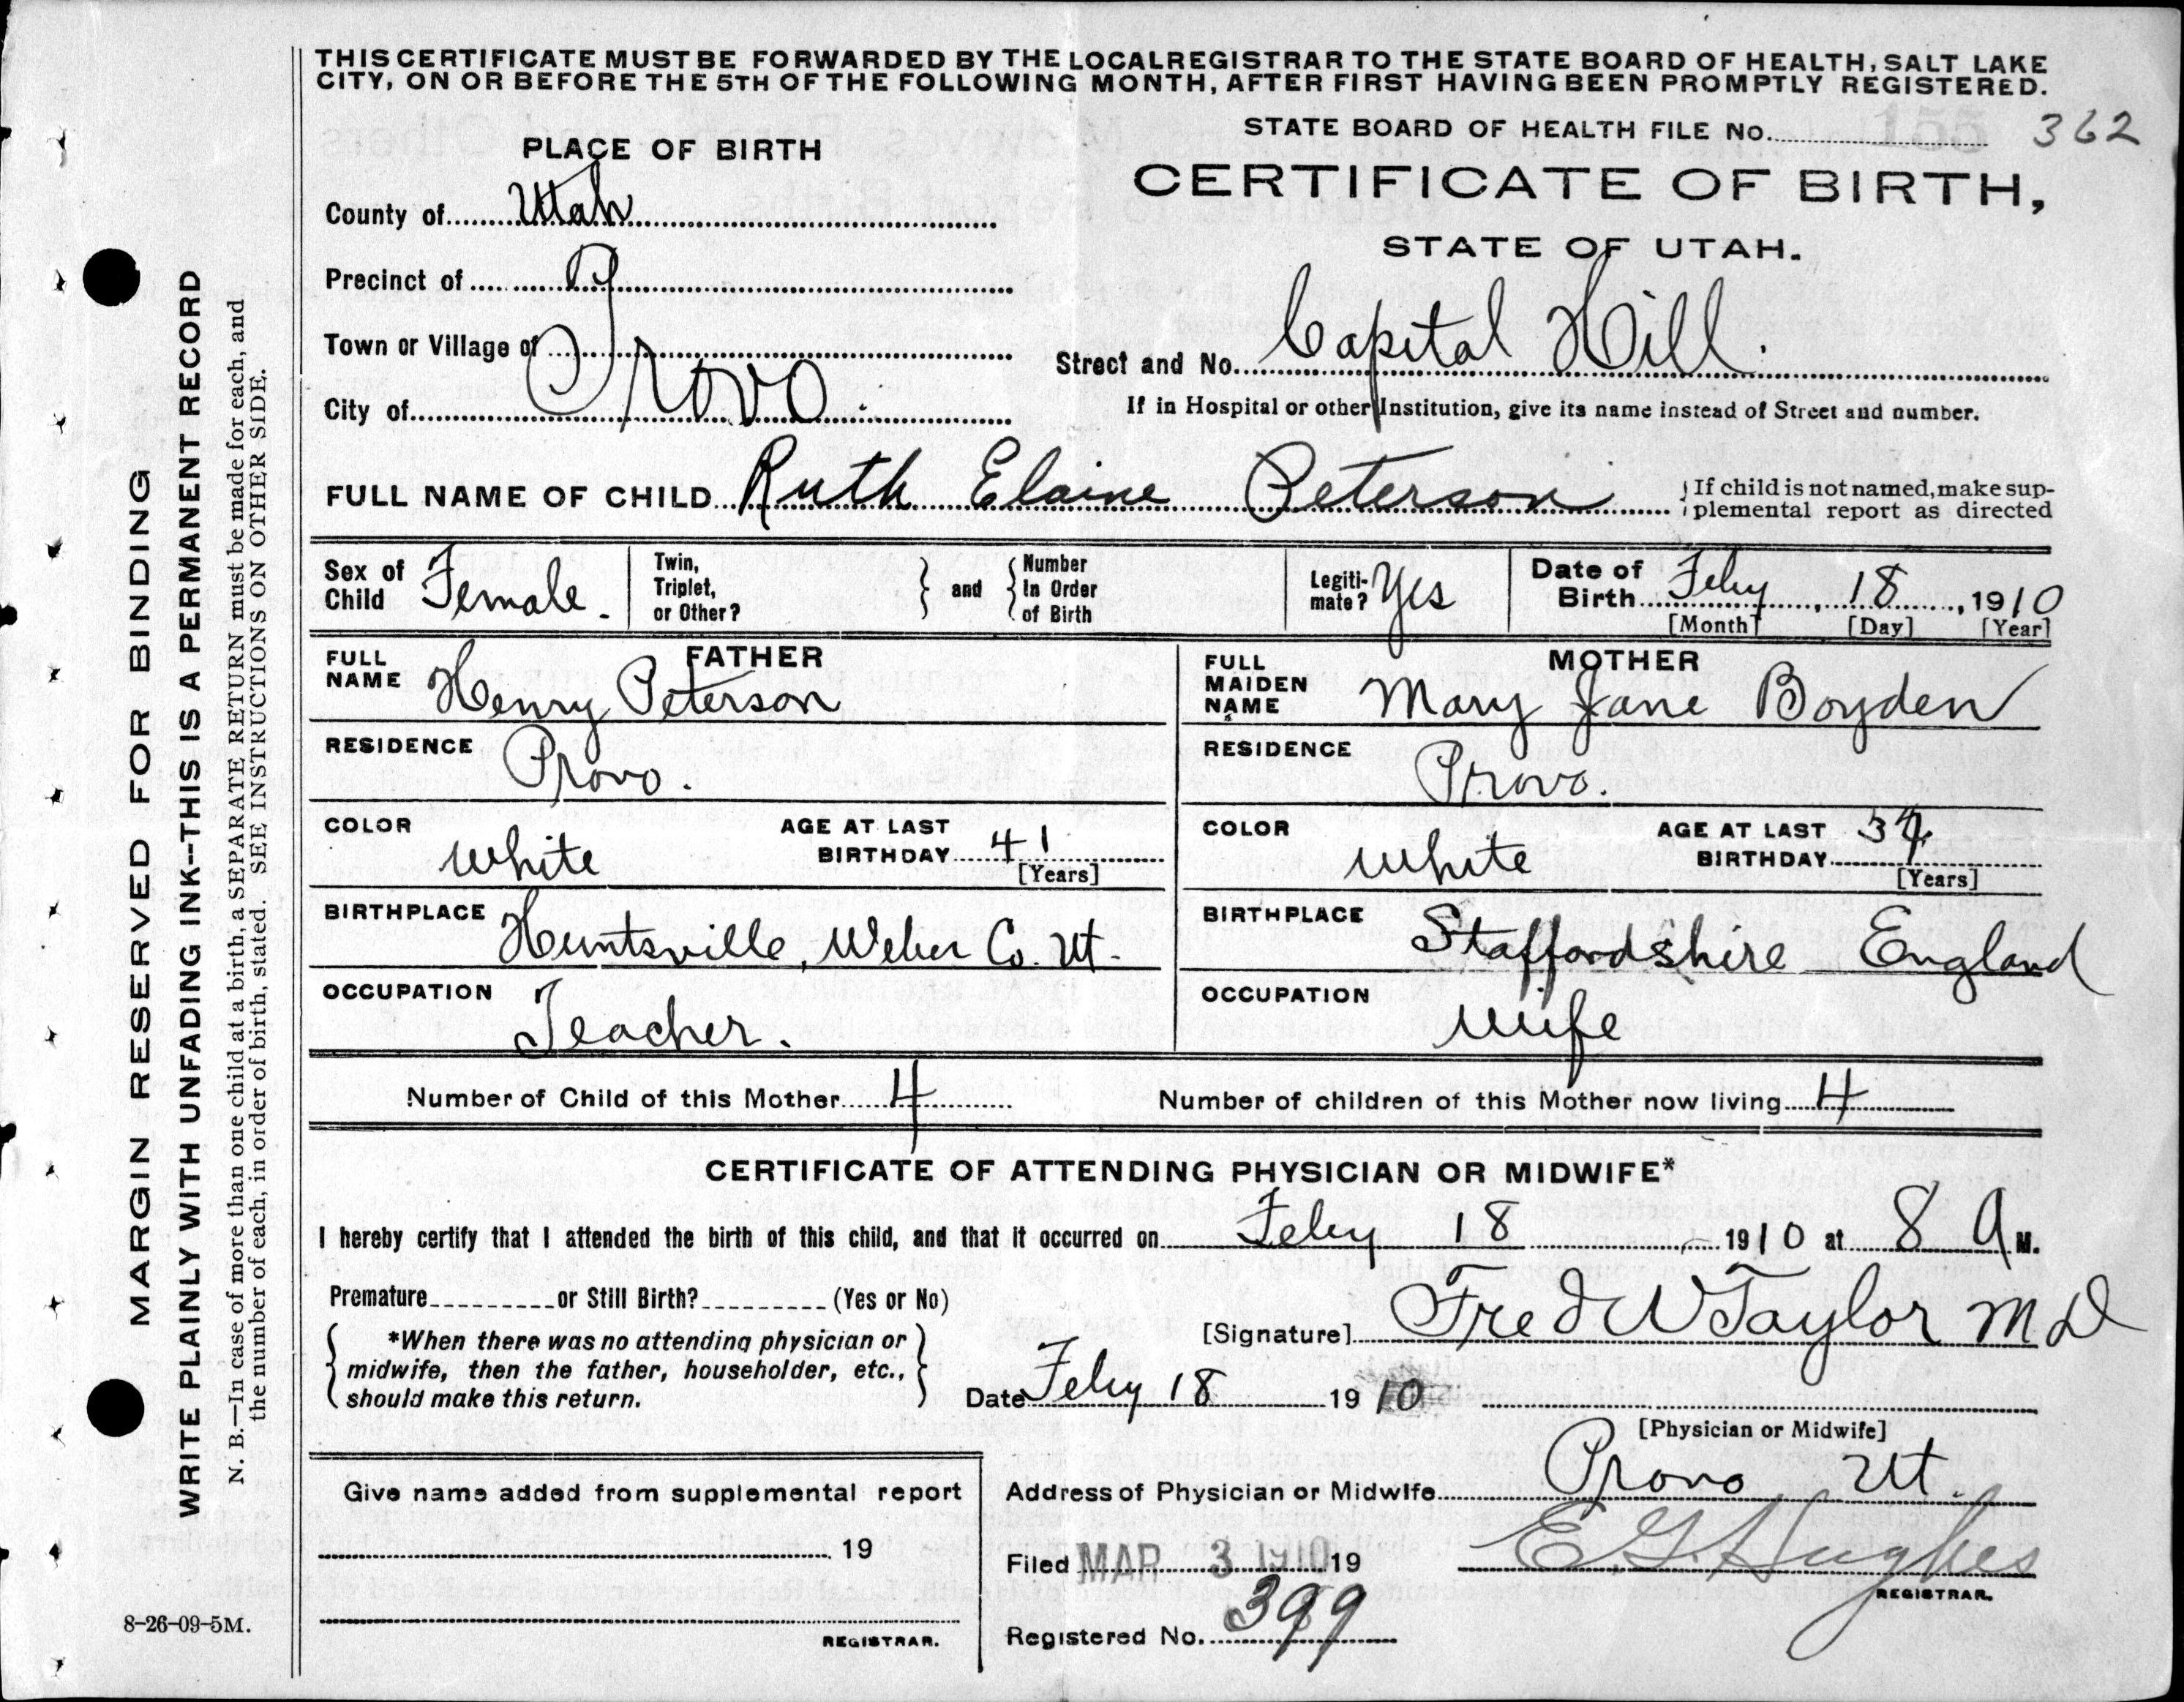 THIS CERTIFICATE MUST BE FORWARDED BY THE LOCAL REGISTRAR TO THE STATE BOARD OF HEALTH, SALT LAKE
CITY, ON OR BEFORE THE 5TH OF THE FOLLOWING MONTH, AFTER FIRST HAVING BEEN PROMPTLY REGISTERED.
STATE BOARD OF HEALTH FILE No. 155 362
PLACE OF BIRTH
CERTIFICATE OF BIRTH,
STATE OF UTAH.
County of Utah
Precinct of
Town or Village of
City of Provo.
Street and No. Capital Hill.
If in Hospital or other Institution, give its name instead of Street and number.
FULL NAME OF CHILD Ruth Elaine Peterson
If child is not named, make sup-
plemental report as directed
Sex of Child Female.
Twin, Triplet, or Other?
and
Number In Order of Birth
Legiti-mate? Yes
Date of Birth Feby 18, 1910
[Month] [Day] [Year]
FATHER
FULL NAME Henry Peterson
RESIDENCE Provo.
COLOR white
AGE AT LAST BIRTHDAY 41
[Years]
BIRTHPLACE Huntsville, Weber Co. Ut.
OCCUPATION Teacher.
MOTHER
FULL MAIDEN NAME Mary Jane Boyden
RESIDENCE Provo.
COLOR white
AGE AT LAST BIRTHDAY
[Years]
BIRTHPLACE Staffordshire England
OCCUPATION wife
Number of Child of this Mother 4
Number of children of this Mother now living 4
CERTIFICATE OF ATTENDING PHYSICIAN OR MIDWIFE*
I hereby certify that I attended the birth of this child, and that it occurred on Feby 18 1910 at 8 A M.
Premature or Still Birth? (Yes or No)
*When there was no attending physician or
midwife, then the father, householder, etc.,
should make this return.
[Signature] Fred W Taylor MD
Date Feby 18 1910
[Physician or Midwife]
Address of Physician or Midwife Provo Ut.
Give name added from supplemental report
19
REGISTRAR.
Filed MAR 3 1910 19
E G Hughes
REGISTRAR.
Registered No. 399
8-26-09-5M.
MARGIN RESERVED FOR BINDING
WRITE PLAINLY WITH UNFADING INK--THIS IS A PERMANENT RECORD
N. B.—In case of more than one child at a birth, a SEPARATE RETURN must be made for each, and
the number of each, in order of birth, stated. SEE INSTRUCTIONS ON OTHER SIDE.